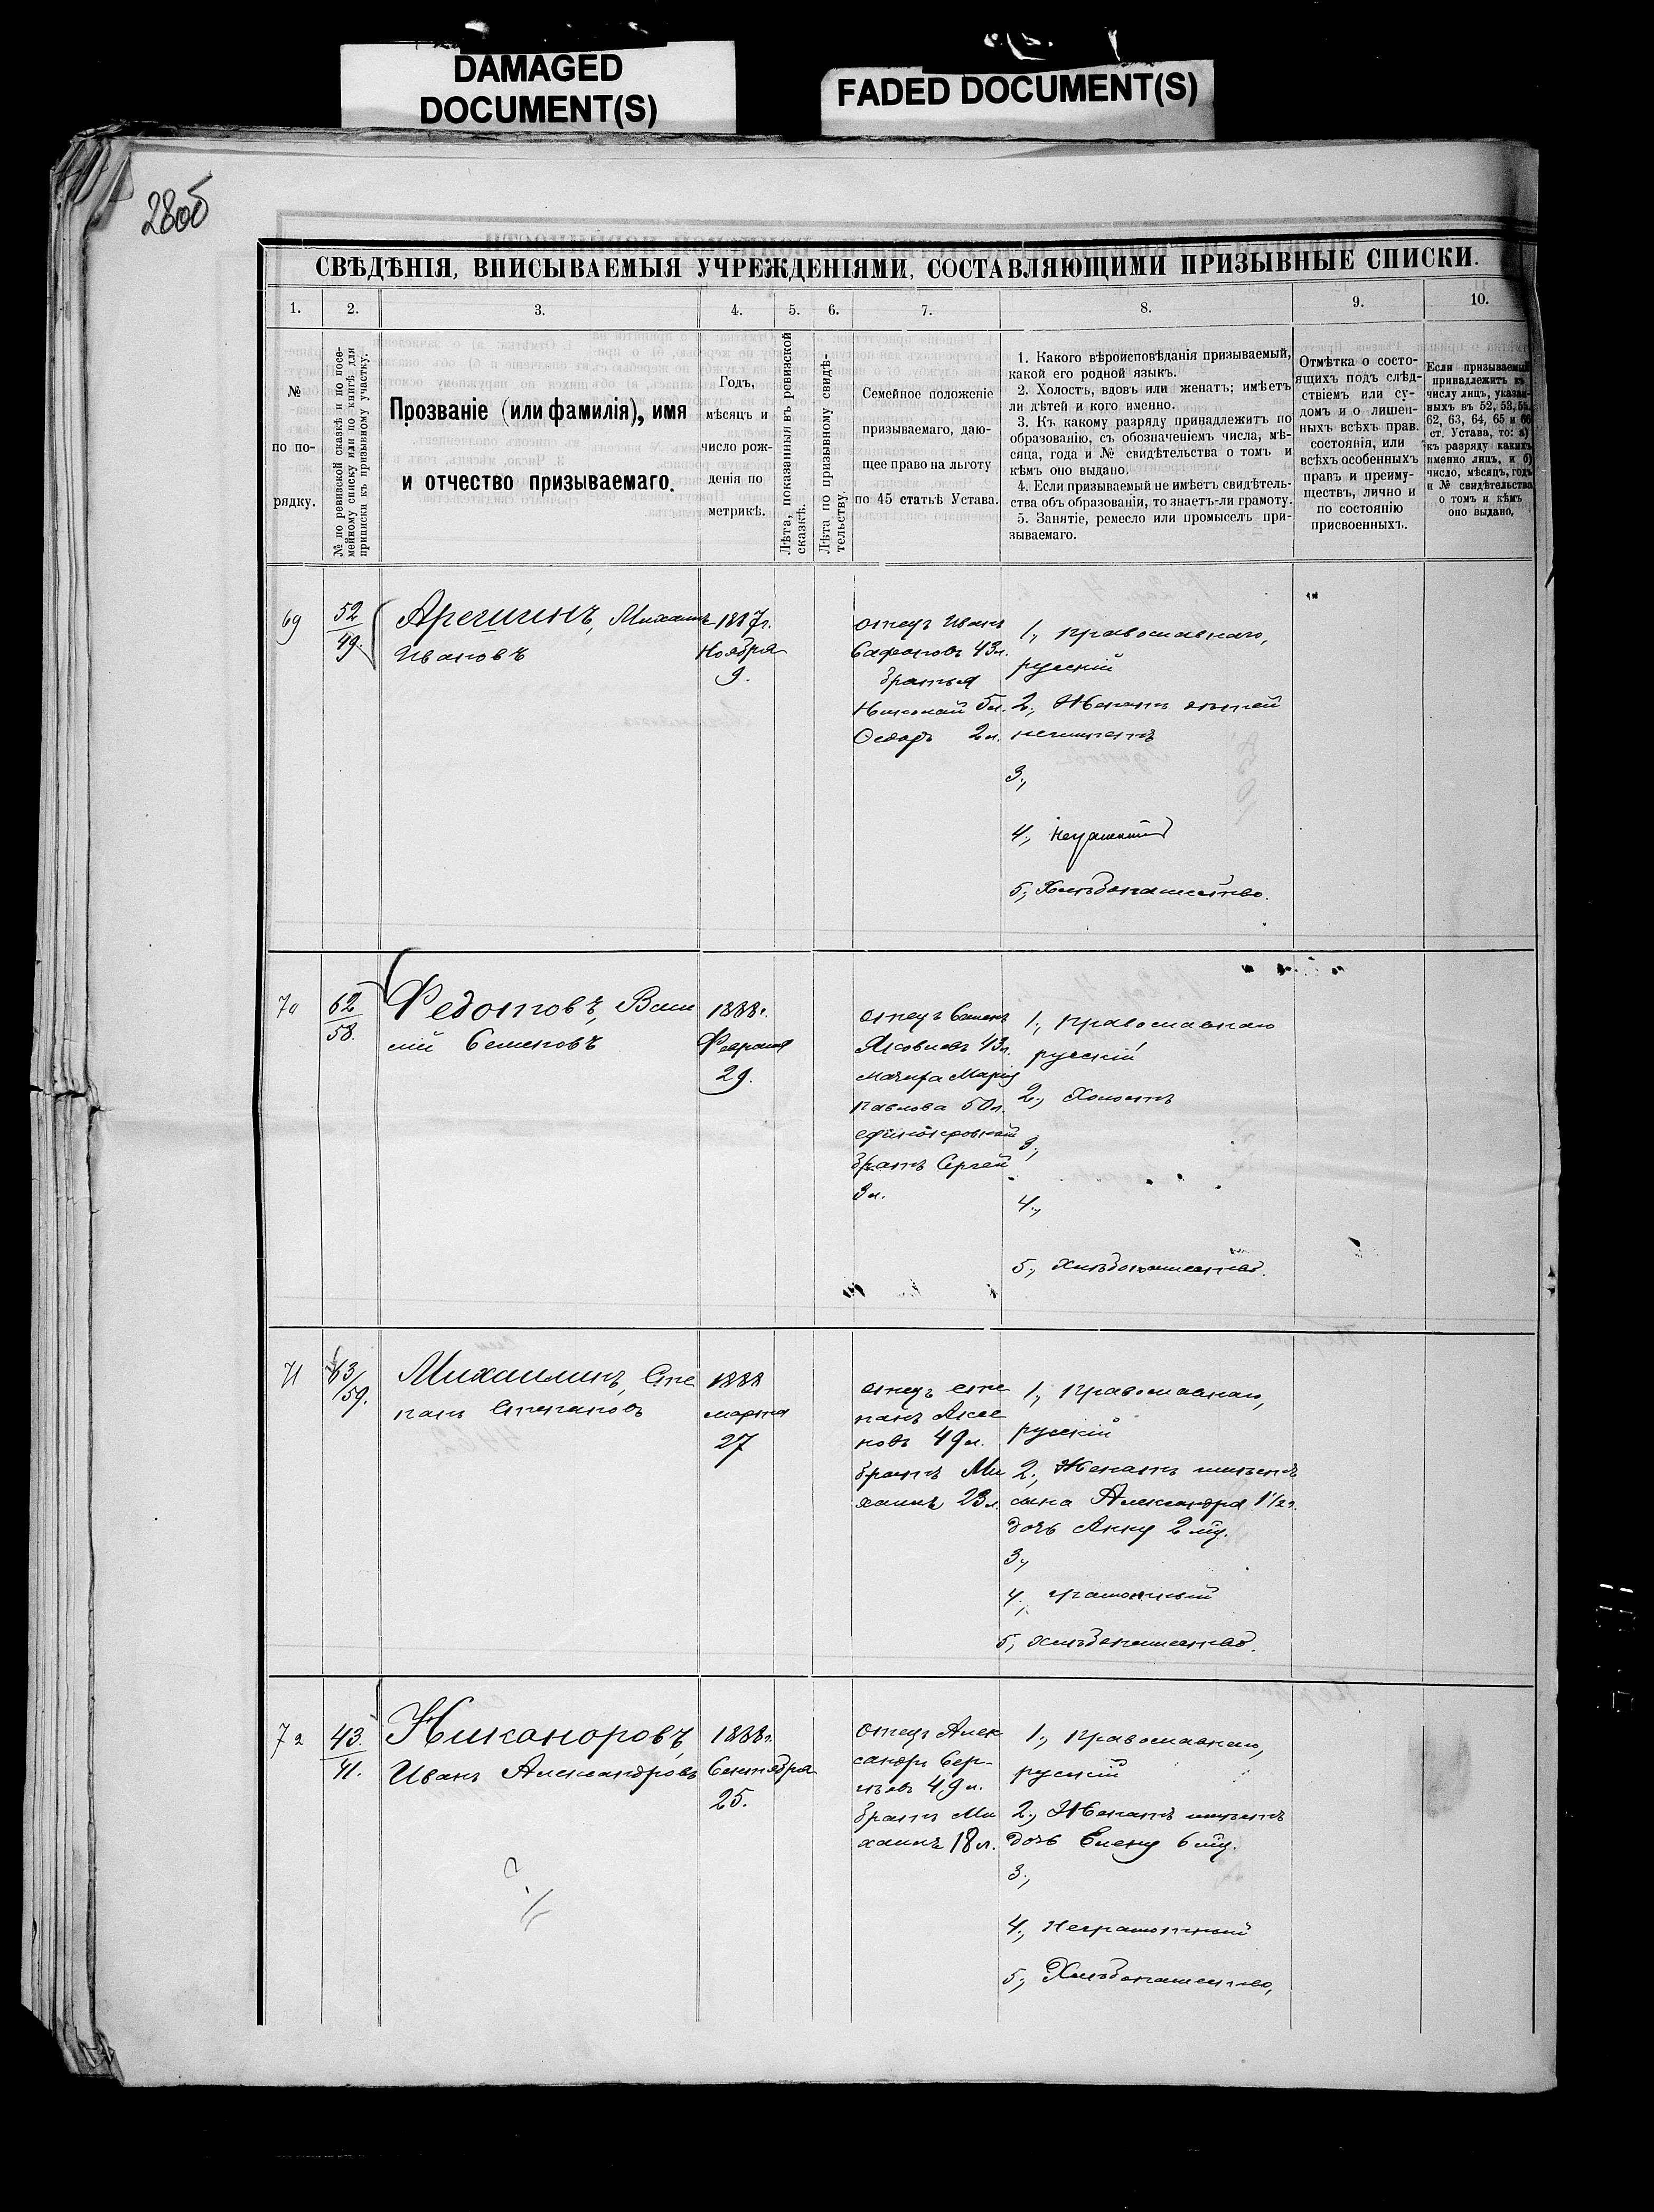 DAMAGED
DOCUMENT(S)
FADED DOCUMENT(S)
280б
СВѢДѢНІЯ, ВПИСЫВАЕМЫЯ УЧРЕЖДЕНІЯМИ, СОСТАВЛЯЮЩИМИ ПРИЗЫВНЫЕ СПИСКИ.
1.
2.
3.
4.
5.
6.
7.
8.
9.
10.
№
по по-
рядку.
№ по ревизской сказкѣ и по посе-
мейному списку или по книгѣ для
приписки къ призывному участку.
Прозваніе (или фамилія), имя
и отчество призываемаго.
Годъ,
мѣсяцъ и
число рож-
денія по
метрикѣ.
Лѣта, показанныя въ ревизской
сказкѣ.
Лѣта по призывному свидѣ-
тельству.
Семейное положеніе
призываемаго, даю-
щее право на льготу
по 45 статьѣ Устава.
1. Какого вѣроисповѣданія призываемый,
какой его родной языкъ.
2. Холостъ, вдовъ или женатъ; имѣетъ
ли дѣтей и кого именно.
3. Къ какому разряду принадлежитъ по
образованію, съ обозначеніемъ числа, мѣ-
сяца, года и № свидѣтельства о томъ и
кѣмъ оно выдано.
4. Если призываемый не имѣетъ свидѣтель-
ства объ образованіи, то знаетъ-ли грамоту.
5. Занятіе, ремесло или промыселъ при-
зываемаго.
Отмѣтка о состо-
ящихъ подъ слѣд-
ствіемъ или су-
домъ и о лишен-
ныхъ всѣхъ прав.
состоянія, или
всѣхъ особенныхъ
правъ и преиму-
ществъ, лично и
по состоянію
присвоенныхъ.
Если призываемый
принадлежитъ къ
числу лицъ, указан-
ныхъ въ 52, 53, 55,
62, 63, 64, 65 и 66
ст. Устава, то: а)
къ разряду какихъ
именно лицъ, и б)
число, мѣсяцъ, годъ
и № свидѣтельства
о томъ и кѣмъ
оно выдано.
69
52
49.
Михаилъ
Ивановъ
1887г.
Ноября
9.
отецъ Иванъ
43л.
братья
Николай 5л.
Ѳедоръ 2л.
1., православнаго,
русскій
2., Женатъ дѣтей
неимѣетъ
3.,
4., Неграмотный
5., Хлѣбопашество.
70
62
58.
Федотовъ, Васи
лій Семеновъ
1888г.
Февраля
29.
отецъ Семенъ
Яковлевъ 43л.
мачиха Марія
Павлова 50л.
единокровный
братъ Сергей
3л.
1., православнаго
русскій
2., Холостъ
3.,
4.,
5., хлѣбопашество.
71
63
59.
Михаилинъ, Сте
панъ Степановъ
1888
марта
27
отецъ Сте
панъ Аксе
новъ 49л.
братъ Ми
хаилъ 23л.
1., православнаго,
русскій
2., Женатъ имѣетъ
сына Александра 1½г.
дочь Анну 2 мц.
3.,
4., грамотный
5., хлѣбопашество.
72
43.
41.
Никаноровъ,
Иванъ Александровъ
1888г.
Сентября
25.
отецъ Алек
сандръ Сер-
гѣевъ 49л.
братъ Ми
хаилъ 18л.
1., православнаго,
русскій
2., Женатъ имѣетъ
дочь Елену 6 мц.
3.,
4., Неграмотный
5., Хлѣбопашество,